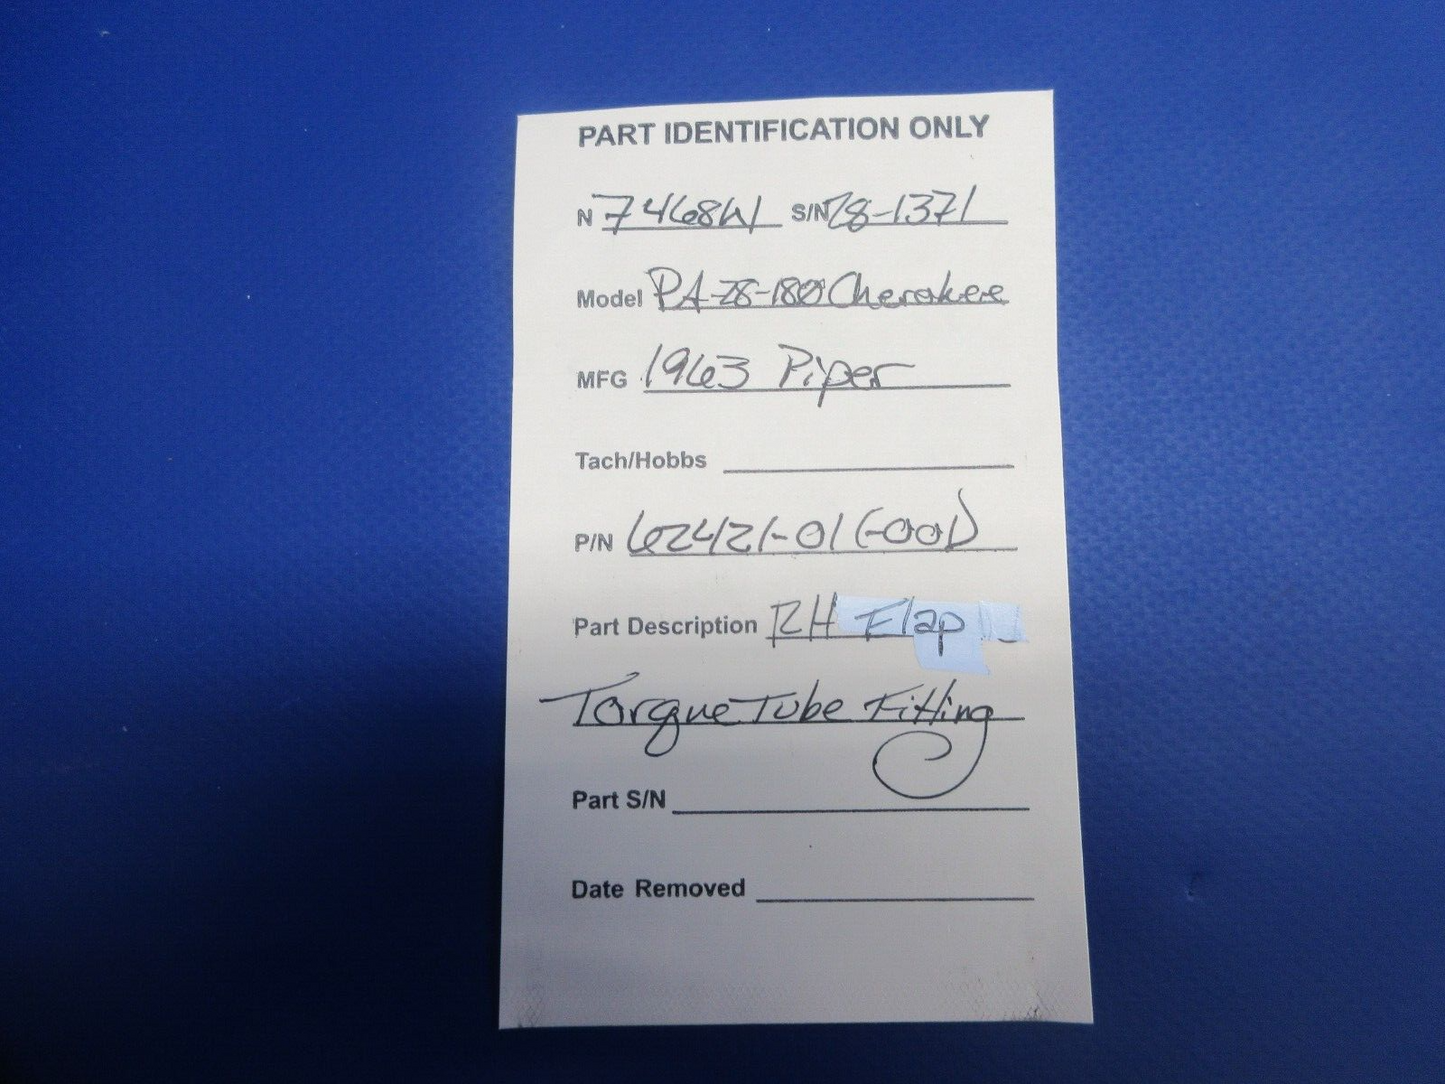 PART IDENTIFICATION ONLY
N 7468W S/N 28-1371
Model PA-28-180 Cherokee
MFG 1963 Piper
Tach/Hobbs
P/N 62421-01 (-001)
Part Description RH Flap
Torque Tube Fitting
Part S/N
Date Removed